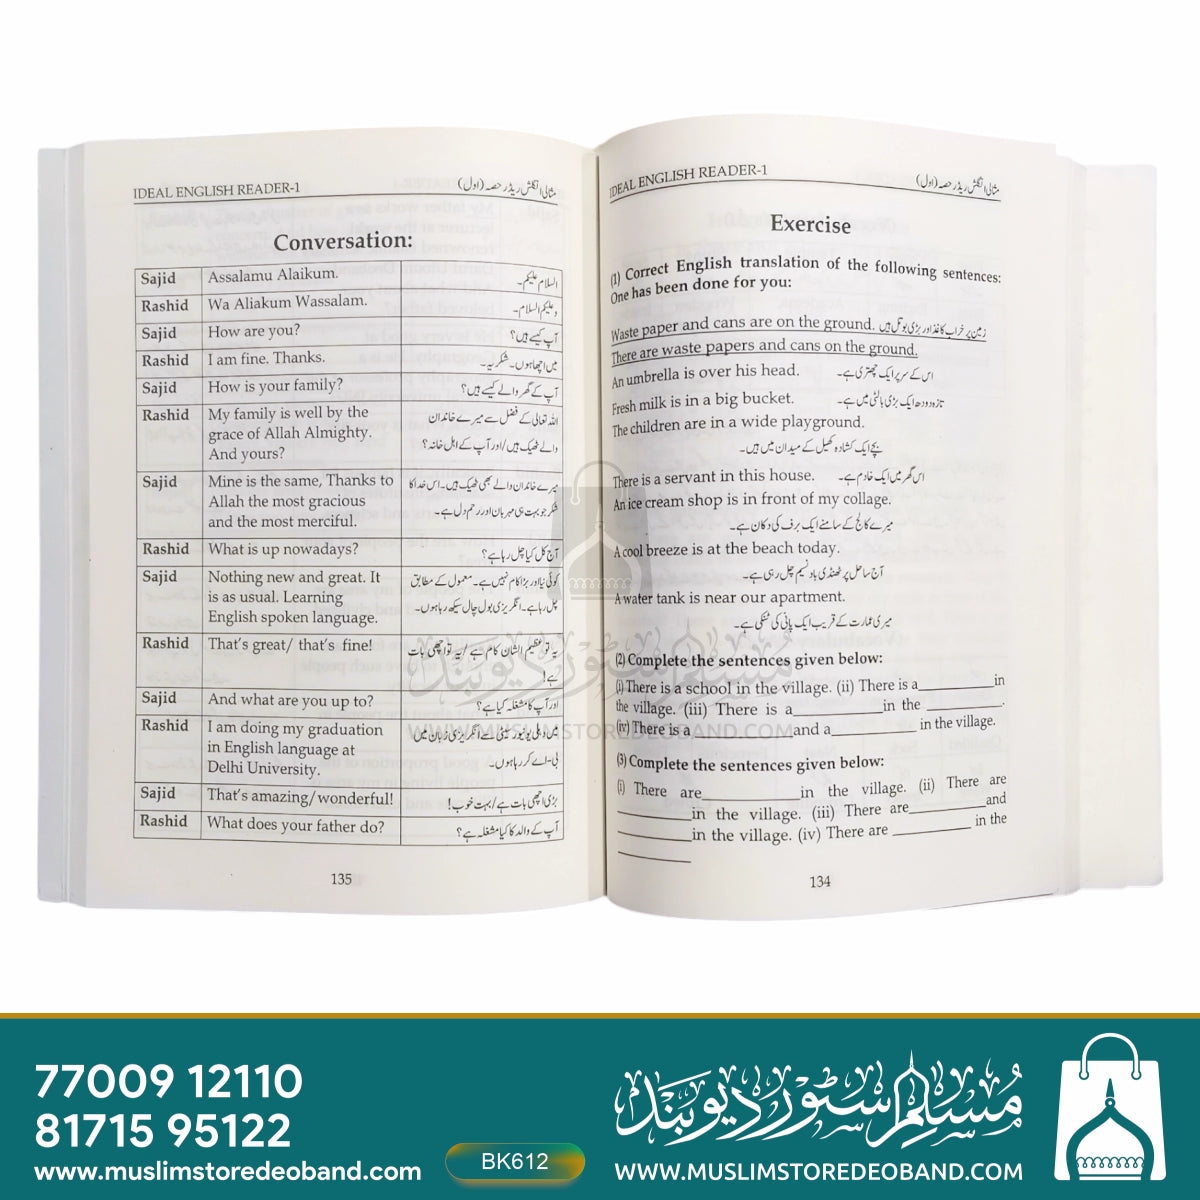 IDEAL ENGLISH READER-1 مثالی انگلش ریڈر حصہ (اول)
Exercise
(1) Correct English translation of the following sentences:
One has been done for you:
Waste paper and cans are on the ground. زمین پر خراب کاغذ اور بڑی بوتل ہیں
There are waste papers and cans on the ground.
An umbrella is over his head. اس کے سر پر ایک چھتری ہے۔
Fresh milk is in a big bucket. تازہ دودھ ایک بڑی بالٹی میں ہے۔
The children are in a wide playground.
بچے ایک کشادہ کھیل کے میدان میں ہیں۔
There is a servant in this house. اس گھر میں ایک خادم ہے۔
An ice cream shop is in front of my collage.
میرے کالج کے سامنے ایک برف کی دکان ہے۔
A cool breeze is at the beach today.
آج ساحل پر ٹھنڈی باد نسیم چل رہی ہے۔
A water tank is near our apartment.
میری عمارت کے قریب ایک پانی کی ٹنکی ہے۔
(2) Complete the sentences given below:
(i) There is a school in the village. (ii) There is a__________in
the village. (iii) There is a____________in the __________.
(iv) There is a ____________and a____________ in the village.
(3) Complete the sentences given below:
(i) There are____________in the village. (ii) There are
_________in the village. (iii) There are__________and
_________in the village. (iv) There are __________ in the
_________
134
IDEAL ENGLISH READER-1 مثالی انگلش ریڈر حصہ (اول)
Conversation:
Sajid Assalamu Alaikum. السلام علیکم۔
Rashid Wa Aliakum Wassalam. وعلیکم السلام۔
Sajid How are you? آپ کیسے ہیں؟
Rashid I am fine. Thanks. میں اچھا ہوں۔ شکریہ۔
Sajid How is your family? آپ کے گھر والے کیسے ہیں؟
Rashid My family is well by the اللہ تعالیٰ کے فضل سے میرے خاندان
grace of Allah Almighty. والے ٹھیک ہیں/اور آپ کے اہل خانہ؟
And yours?
Sajid Mine is the same, Thanks to میرے خاندان والے بھی ٹھیک ہیں۔ اس خدا کا
Allah the most gracious شکر جو بہت ہی مہربان اور رحم دل ہے۔
and the most merciful.
Rashid What is up nowadays? آج کل کیا چل رہا ہے؟
Sajid Nothing new and great. It کوئی نیا اور بڑا کام نہیں ہے۔ معمول کے مطابق
is as usual. Learning چل رہا ہے۔ انگریزی بول چال سیکھ رہا ہوں۔
English spoken language.
Rashid That's great/ that's fine! یہ تو عظیم الشان کام ہے/یہ تو اچھی بات
ہے!
Sajid And what are you up to? اور آپ کا مشغلہ کیا ہے؟
Rashid I am doing my graduation میں دہلی یونیورسٹی سے انگریزی زبان میں
in English language at بی-اے کر رہا ہوں۔
Delhi University.
Sajid That's amazing/wonderful! بڑی اچھی بات ہے/بہت خوب!
Rashid What does your father do? آپ کے والد کا کیا مشغلہ ہے؟
135
مسلم سٹور دیوبند
WWW.MUSLIMSTOREDEOBAND.COM
77009 12110
81715 95122
www.muslimstoredeoband.com
BK612
مسلم سٹور دیوبند
WWW.MUSLIMSTOREDEOBAND.COM